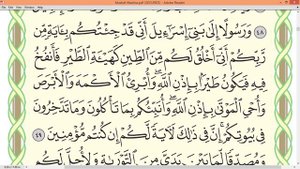 Mushaf Madina.pdf (SECURED) - Adobe Reader
٤٨ وَرَسُولًا إِلَىٰ بَنِيٓ إِسْرَٰٓءِيلَ أَنِّي قَدْ جِئْتُكُم بِـَٔايَةٍ مِّن
رَّبِّكُمْ أَنِّيٓ أَخْلُقُ لَكُم مِّنَ ٱلطِّينِ كَهَيْـَٔةِ ٱلطَّيْرِ فَأَنفُخُ
فِيهِ فَيَكُونُ طَيْرًۢا بِإِذْنِ ٱللَّهِ ۖ وَأُبْرِئُ ٱلْأَكْمَهَ وَٱلْأَبْرَصَ
وَأُحْيِ ٱلْمَوْتَىٰ بِإِذْنِ ٱللَّهِ ۖ وَأُنَبِّئُكُم بِمَا تَأْكُلُونَ وَمَا تَدَّخِرُونَ
فِي بُيُوتِكُمْ ۚ إِنَّ فِي ذَٰلِكَ لَـَٔايَةً لَّكُمْ إِن كُنتُم مُّؤْمِنِينَ ٤٩
وَمُصَدِّقًا لِّمَا بَيْنَ يَدَيَّ مِنَ ٱلتَّوْرَىٰةِ وَلِأُحِلَّ لَكُم